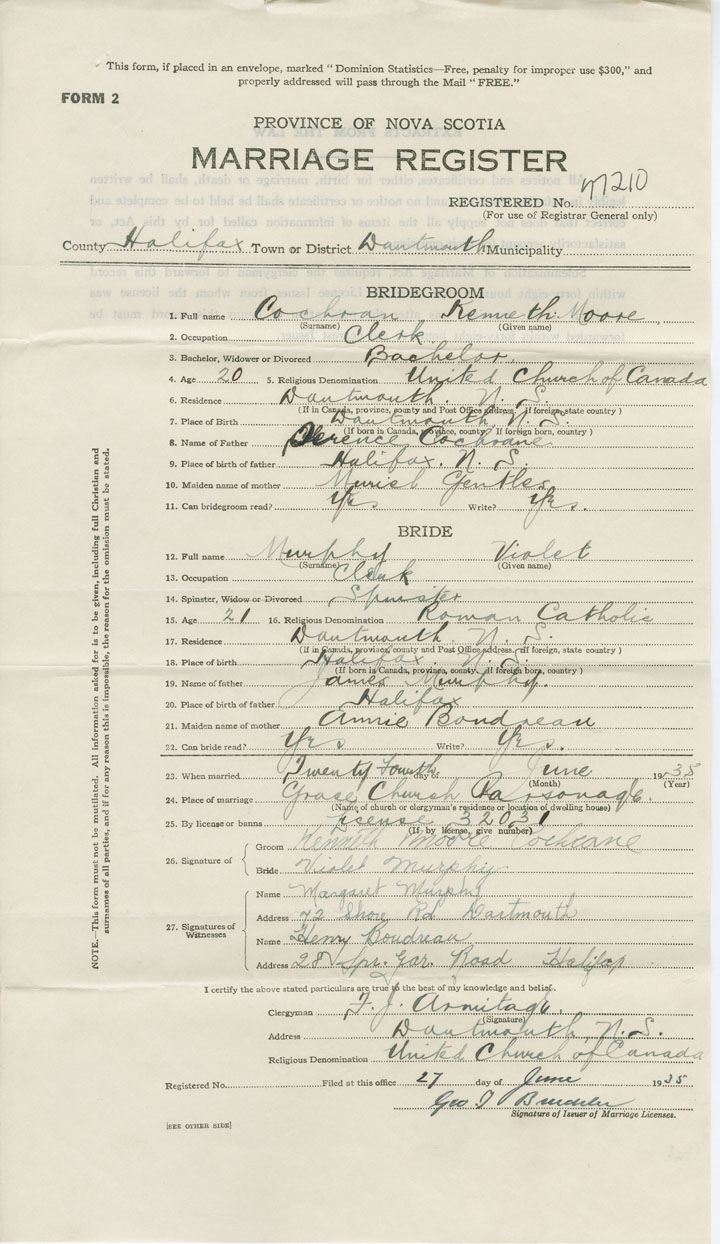 This form, if placed in an envelope, marked "Dominion Statistics—Free, penalty for improper use $300," and
properly addressed will pass through the Mail "FREE."
FORM 2
PROVINCE OF NOVA SCOTIA
MARRIAGE REGISTER
REGISTERED No. 210
(For use of Registrar General only)
County Halifax Town or District Dartmouth Municipality
BRIDEGROOM
1. Full name Cochran Kenneth Moore
(Surname) (Given name)
2. Occupation Clerk
3. Bachelor, Widower or Divorced Bachelor
4. Age 20 5. Religious Denomination United Church of Canada
6. Residence Dartmouth. N. S.
(If in Canada, province, county and Post Office address. If foreign, state country)
7. Place of Birth Dartmouth N. S.
(If born in Canada, province, county. If foreign born, country)
8. Name of Father Cochrane
9. Place of birth of father Halifax. N. S
10. Maiden name of mother Muriel Gentles
11. Can bridegroom read? Yes Write? Yes.
BRIDE
12. Full name Murphy Violet
(Surname) (Given name)
13. Occupation Clerk
14. Spinster, Widow or Divorced Spinster
15. Age 21 16. Religious Denomination Roman Catholic
17. Residence Dartmouth. N. S.
(If in Canada, province, county and Post Office address. If foreign, state country)
18. Place of birth Halifax N. S.
(If born in Canada, province, county. If foreign born, country)
19. Name of father James Murphy.
20. Place of birth of father Halifax
21. Maiden name of mother Annie Boudreau
22. Can bride read? Yes Write? Yes.
23. When married Twenty Fourth day of June 1935
(Month) (Year)
24. Place of marriage Grace Church Parsonage.
(Name of church or clergyman's residence or location of dwelling house)
25. By license or banns License 32031
(If by license, give number)
26. Signature of
Groom Kenneth Moore Cochrane
Bride Violet Murphy
27. Signatures of Witnesses
Name Margaret Murphy
Address 72 Shore Rd Dartmouth
Name Henry Boudreau
Address Spr. Gar. Road Halifax
I certify the above stated particulars are true to the best of my knowledge and belief.
Clergyman F. J. Armitage.
(Signature)
Address Dartmouth, N. S.
Religious Denomination United Church of Canada
Registered No. Filed at this office 27 day of June 1935
Geo
Signature of Issuer of Marriage Licenses.
[SEE OTHER SIDE]
NOTE.—This form must not be mutilated. All information asked for is to be given, including full Christian and
surnames of all parties, and if for any reason this is impossible, the reason for the omission must be stated.